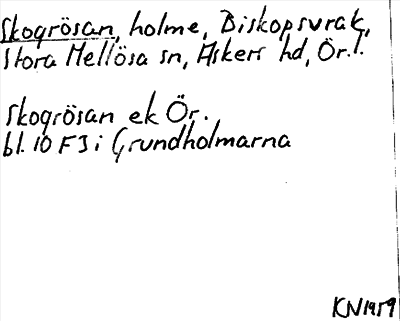 Skogrösan, holme, Biskopsvrak,
Stora Mellösa sn, Askers hd, Ör.l.
Skogrösan ek Ör.
bl. 10 F3 i Grundholmarna
KN 1959